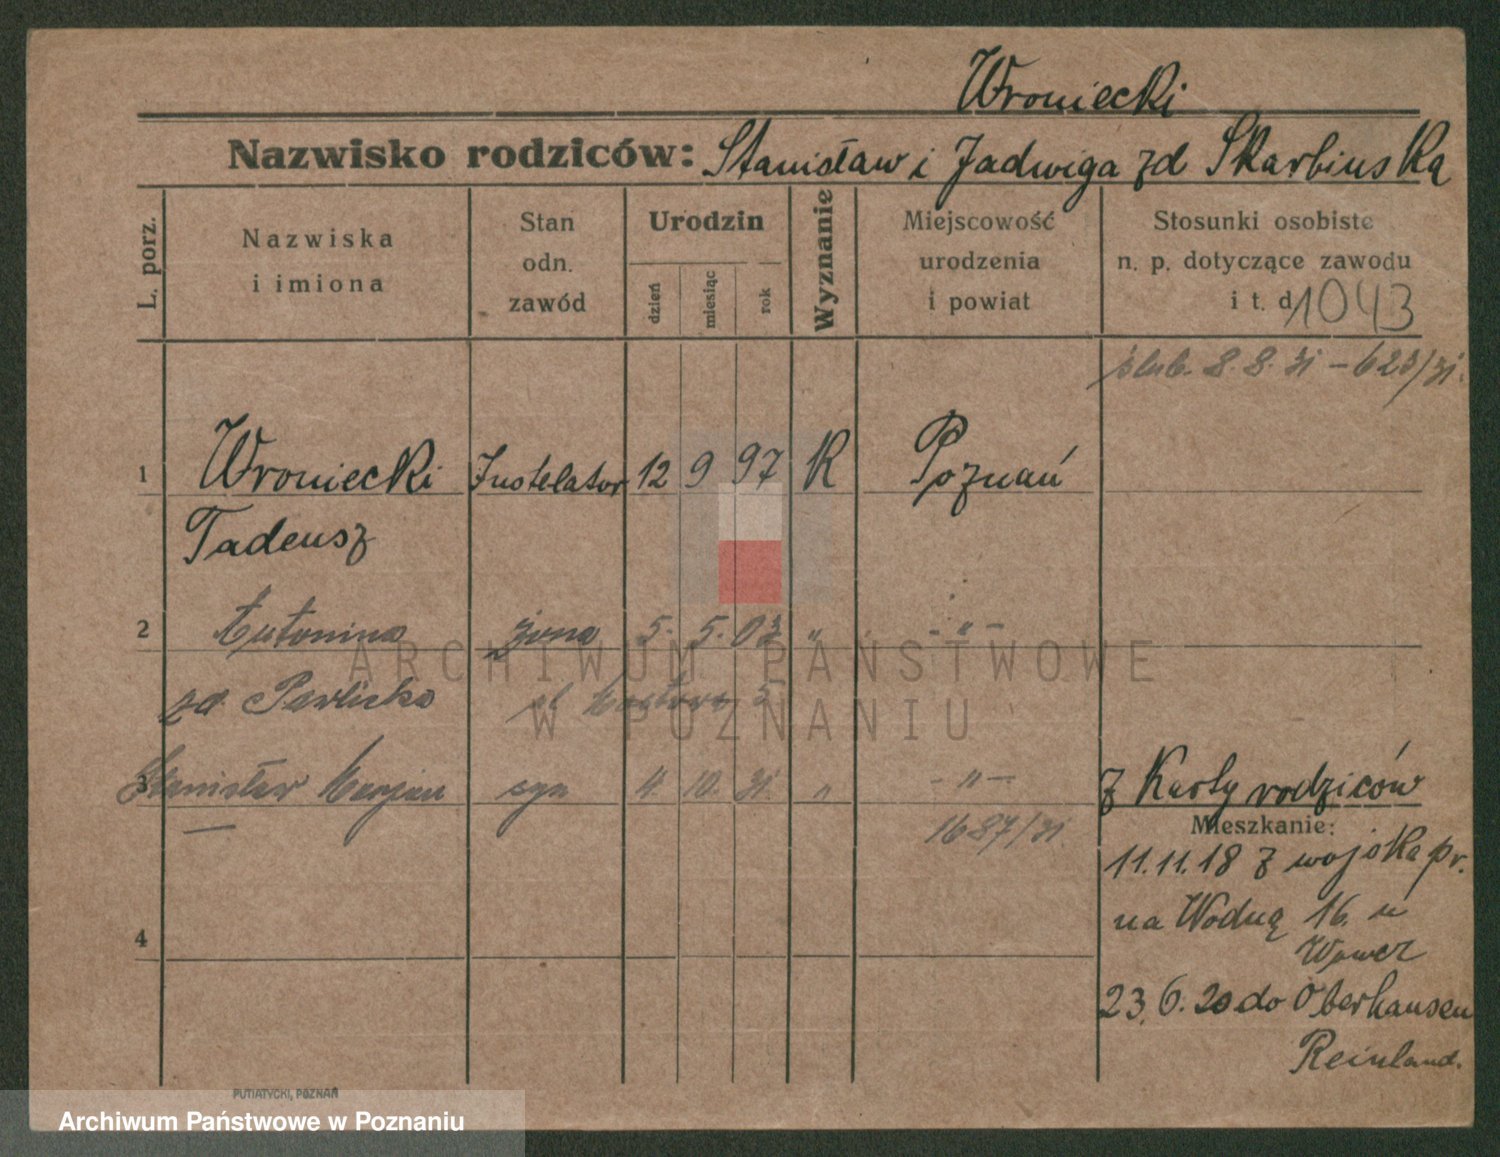 Wroniecki
Nazwisko rodziców: Stanisław i Jadwiga zd Skarbinska
L. porz.
Nazwiska
i imiona
Stan
odn.
zawód
Urodzin
dzień
miesiąc
rok
Wyznanie
Miejscowość
urodzenia
i powiat
Stosunki osobiste
n. p. dotyczące zawodu
i t. d
1043
ślub. 8. 8. 31 – 623/31.
1 Wroniecki Instelator 12 9 97 K Poznań
Tadeusz
2 Antonina żona 5. 5. 03 „ - „ -
zd.
ARCHIWUM PAŃSTWOWE
W POZNANIU
3 Stanisław Marjan syn 4. 10. 31. „ - „ -
1687/31.
z Karty rodziców
Mieszkanie:
11.11.18 z wojska pr.
na Wodną 16. u
23.6.20 do Oberhausen
Reinland.
4
PUTIATYCKI, POZNAŃ
Archiwum Państwowe w Poznaniu